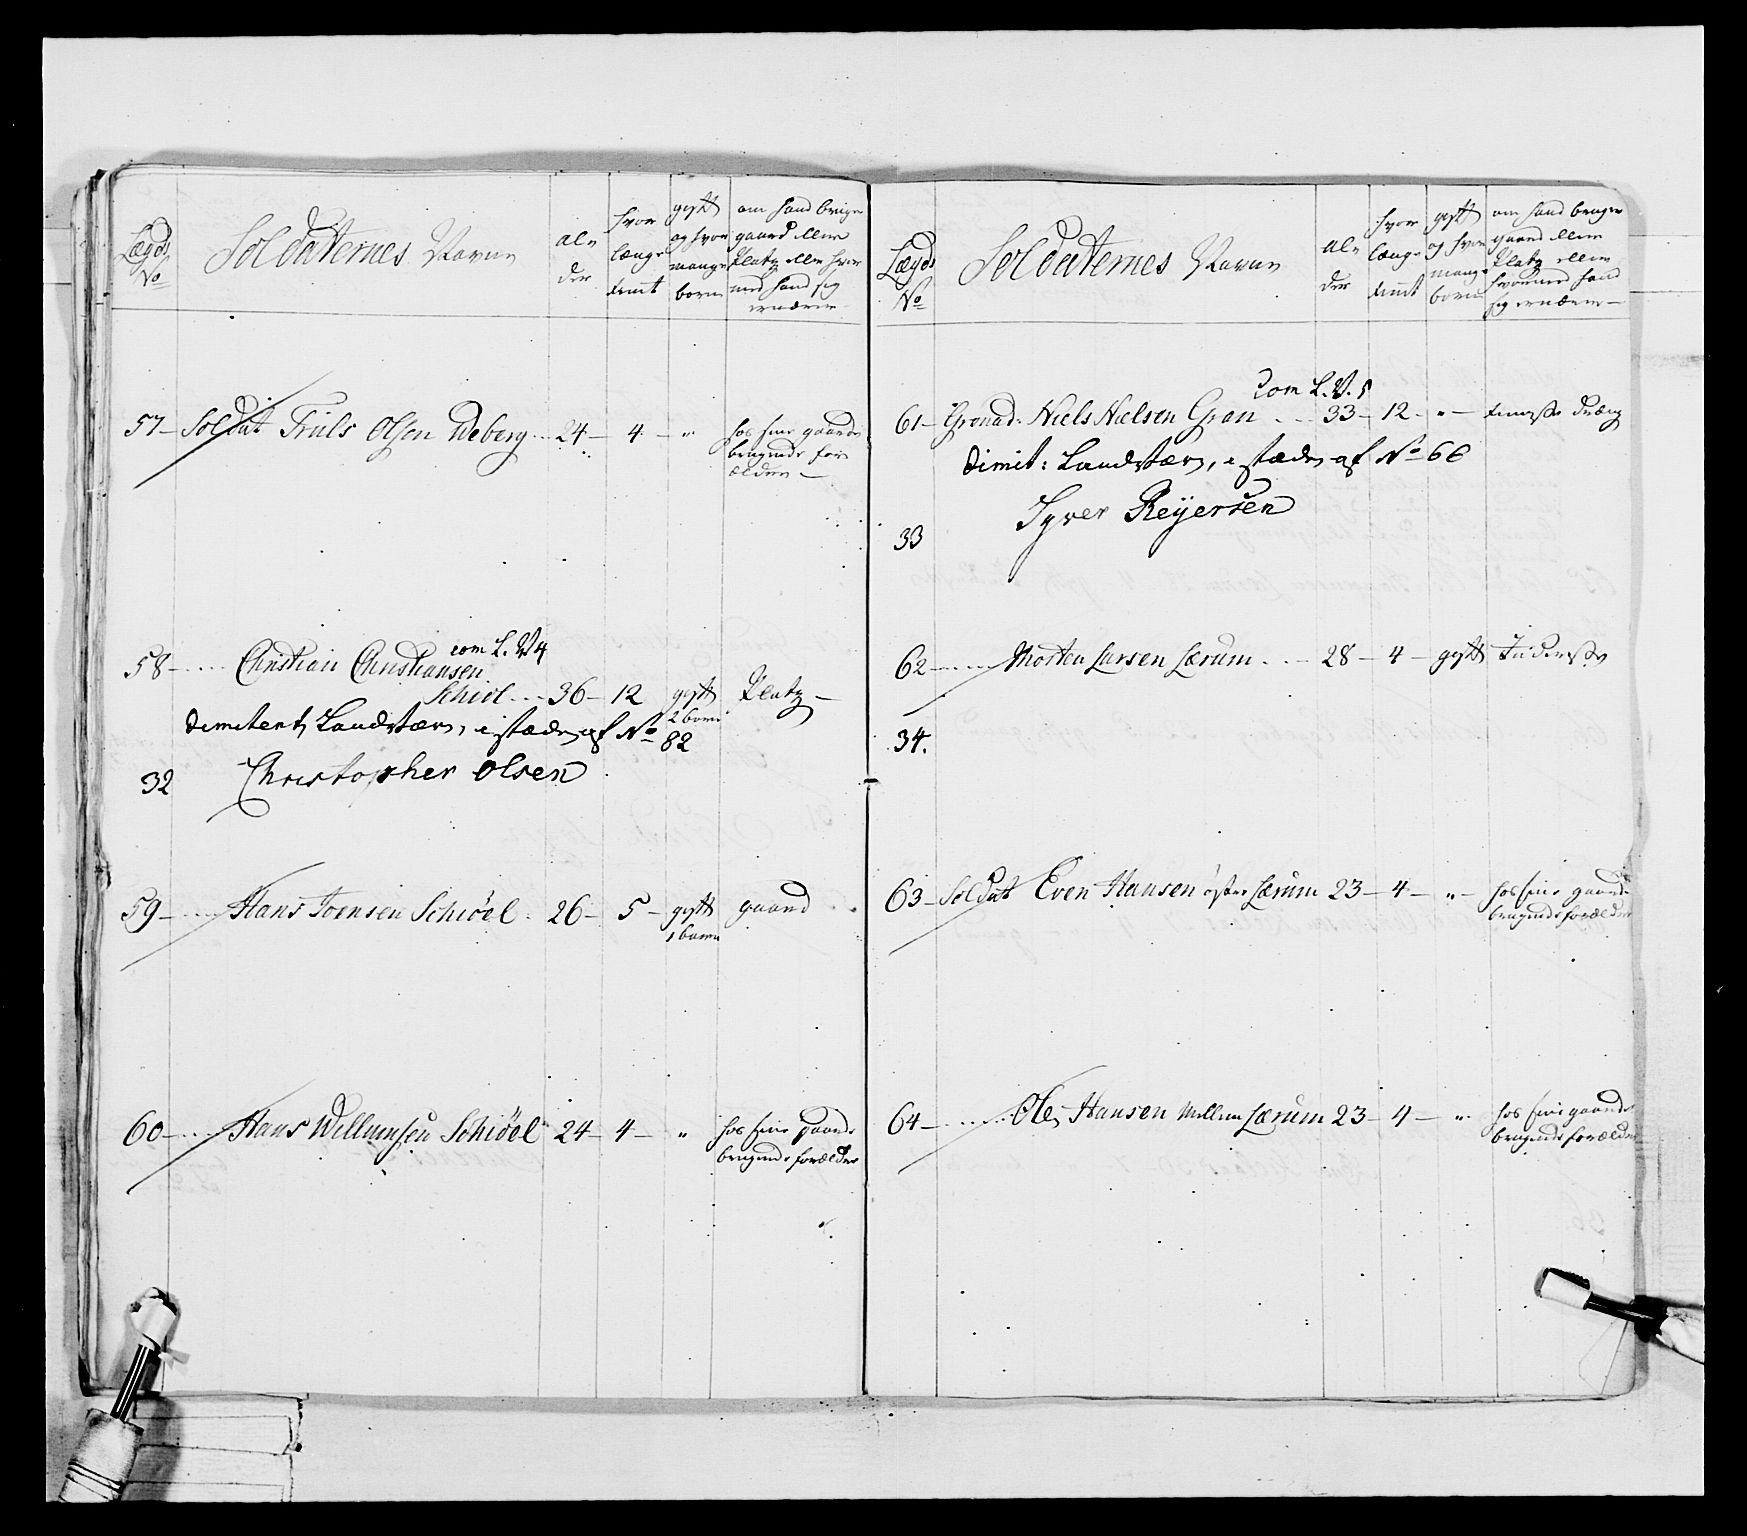 Lægds No
Soldaternes Navne
Al-
der
hvor
længe
tient
gift
og hvor
mange
børn
om hand bruger
gaard eller
Platz eller hvor
med hand sig
ernærer
57 – Soldat Truls Olsen Deberg .. 24 – 4 – " hos sine gaard
brugende for
ældre –
com L. V 4
58 – .... Christian Christiansen
Schiöl ... 36 – 12 gift Platz –
2 børn
dimitert, Landværn, i stæden af No 82
32 Christopher Olsen
59 – .... Hans Joensen Schiöel . 26 – 5 – gift gaard
1 barn
60 – .... Hans Willumsen Schiöel 24 – 4 – " hos sine gaard
brugende forældre
Lægds No
Soldaternes Navne
Al-
der
hvor
længe
tient
gift
og hvor
mange
børn
om hand bruger
gaard eller
Platz eller
hvormed hand
sig ernærer –
com L. V. 5
61 – Grenad. Niels Nielsen Gran ... 33 – 12 – " – dræng
dimit: Landværn, i stæden af No 66
Iyver Reyersen
33
62 – .... Morten Larsen Lærum ... 28 – 4 – gift Inderste
34.
63 – Soldat Even Hansen öster Lærum 23 – 4 – " – hos sine gaard
brugende forældre
64 – .... Ole Hansen Mellem Lærum 23 – 4 – " hos sine gaard
brugende forældre